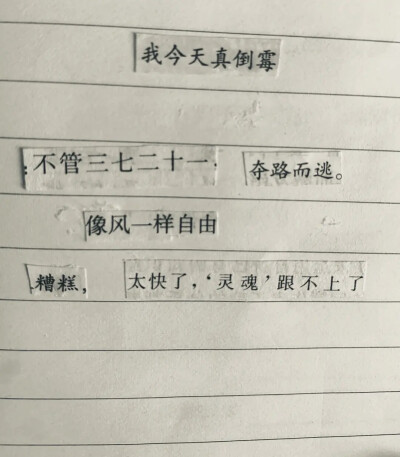 我今天真倒霉
不管三七二十一, 夺路而逃。
像风一样自由
糟糕, 太快了,‘灵魂’跟不上了